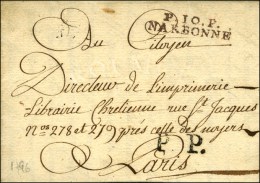 P. 10. P.
NARBONNE
Au Citoyen
Directeur de l'imprimerie
Librairie Chretienne rue St Jacques
Nos 278 et 279 près celle des noyers
P. P.
Paris
1796